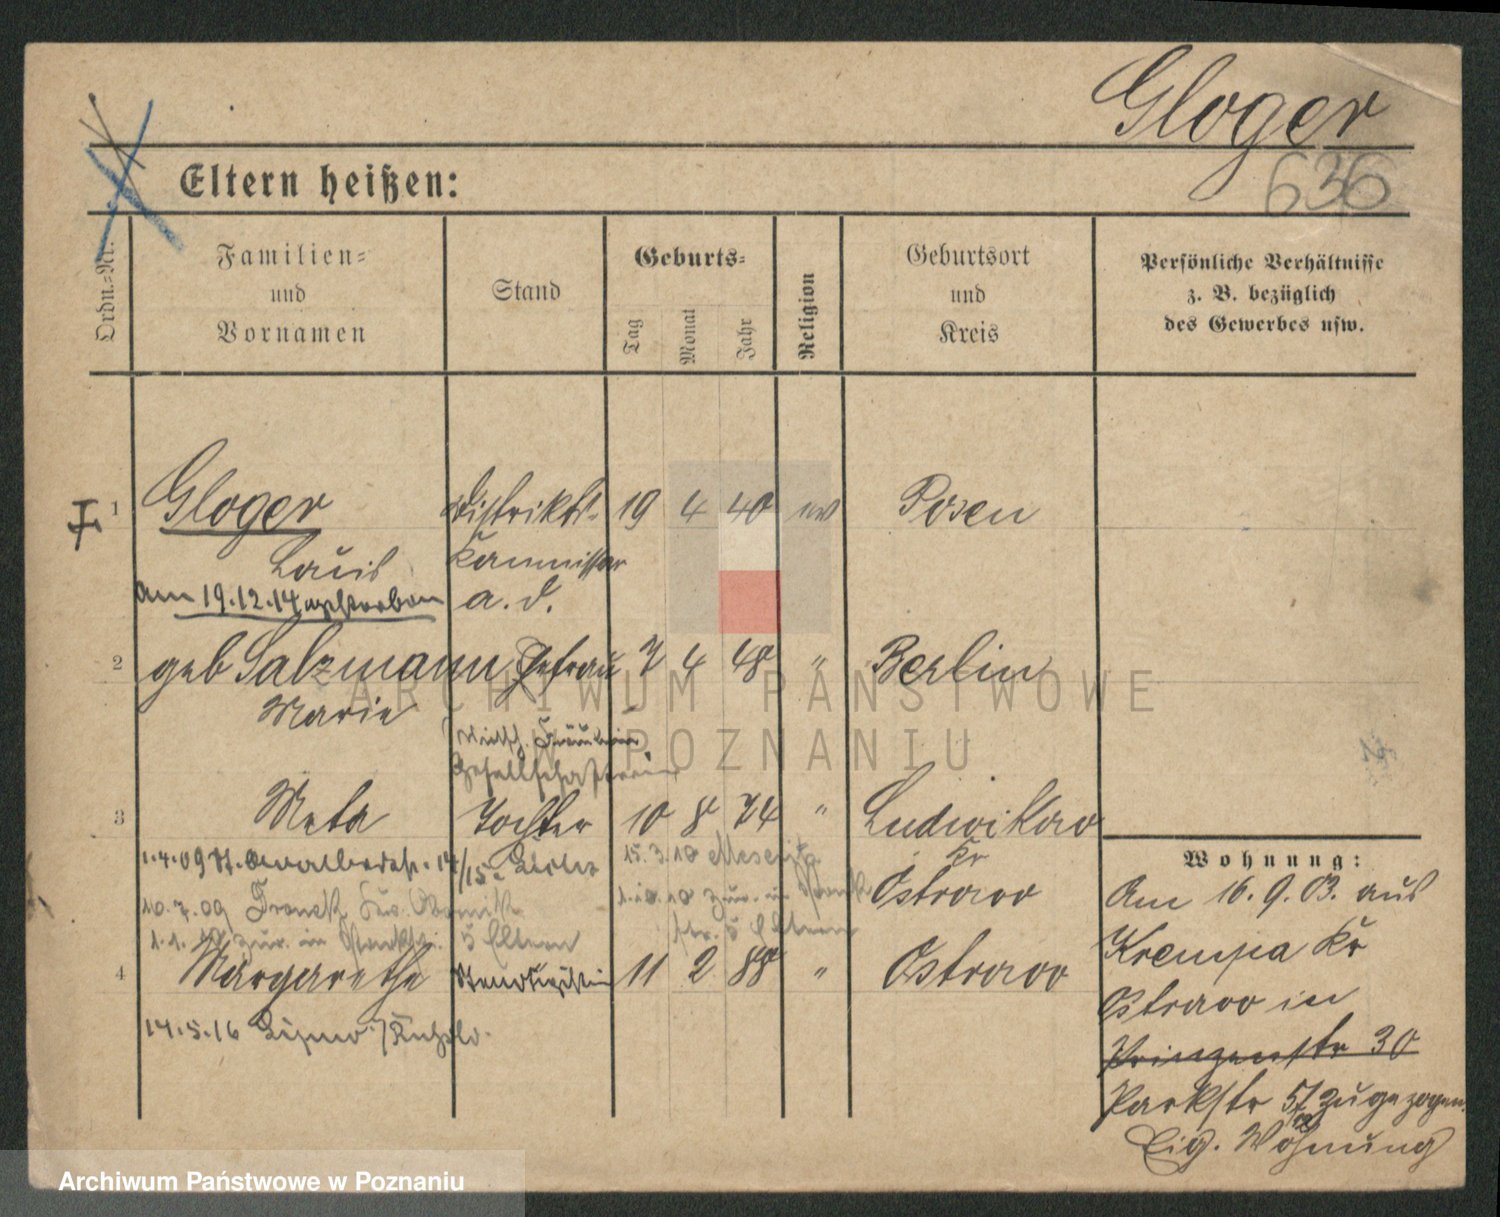 Gloger
636
Eltern heißen:
Ordn.=Nr.
Familien=
und
Vornamen
Stand
Geburts=
Tag
Monat
Jahr
Religion
Geburtsort
und
Kreis
Persönliche Verhältnisse
z. B. bezüglich
des Gewerbes usw.
1 Gloger Distrikts- 19 4 40 ev Posen
Louis Kommissar
am 19.12.14 gestorben a. D.
2 geb Salzmann Ehefrau 7 4 48 " Berlin
Marie
Gesellschafterin
3 Meta Tochter 10 8 74 " Ludwikow
Kr
Ostrowo
1.4.09 14/15
15.3.10 Meseritz
10.7.09
1.10.10 zur. in
1.1. zur. in z Eltern
str. z Eltern
4 Margarethe 11 2 88 " Ostrowo
14.5.16
Wohnung:
Am 16.9.03. aus
Krempa Kr
Ostrowo in
Prinzenstr 30
Parkstr 5 zugezogen.
Eig. Wohnung
ARCHIWUM PAŃSTWOWE
W POZNANIU
Archiwum Państwowe w Poznaniu